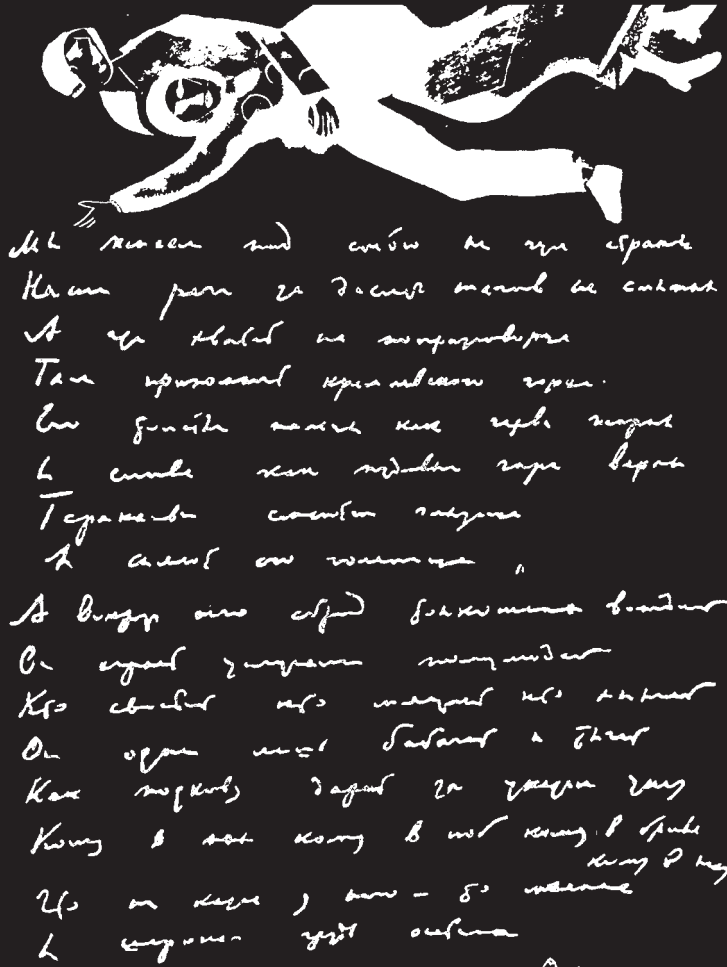 Мы живем под собою не чуя страны
Наши речи за десять шагов не слышны
А где хватит на полразговорца
Там припомнят кремлевского горца.
Его пальцы как черви жирны
И слова как пудовые гири верны
Тараканьи смеются глазища
И сияют его голенища
А вокруг него сброд тонкошеих вождей
Он играет услугами полулюдей
Кто свистит кто мяучит кто хнычет
Он один лишь бабачит и тычет
Как подкову дарит за указом указ
Кому в пах кому в лоб кому в бровь
кому в
Что ни казнь у него - то малина
И широкая грудь осетина